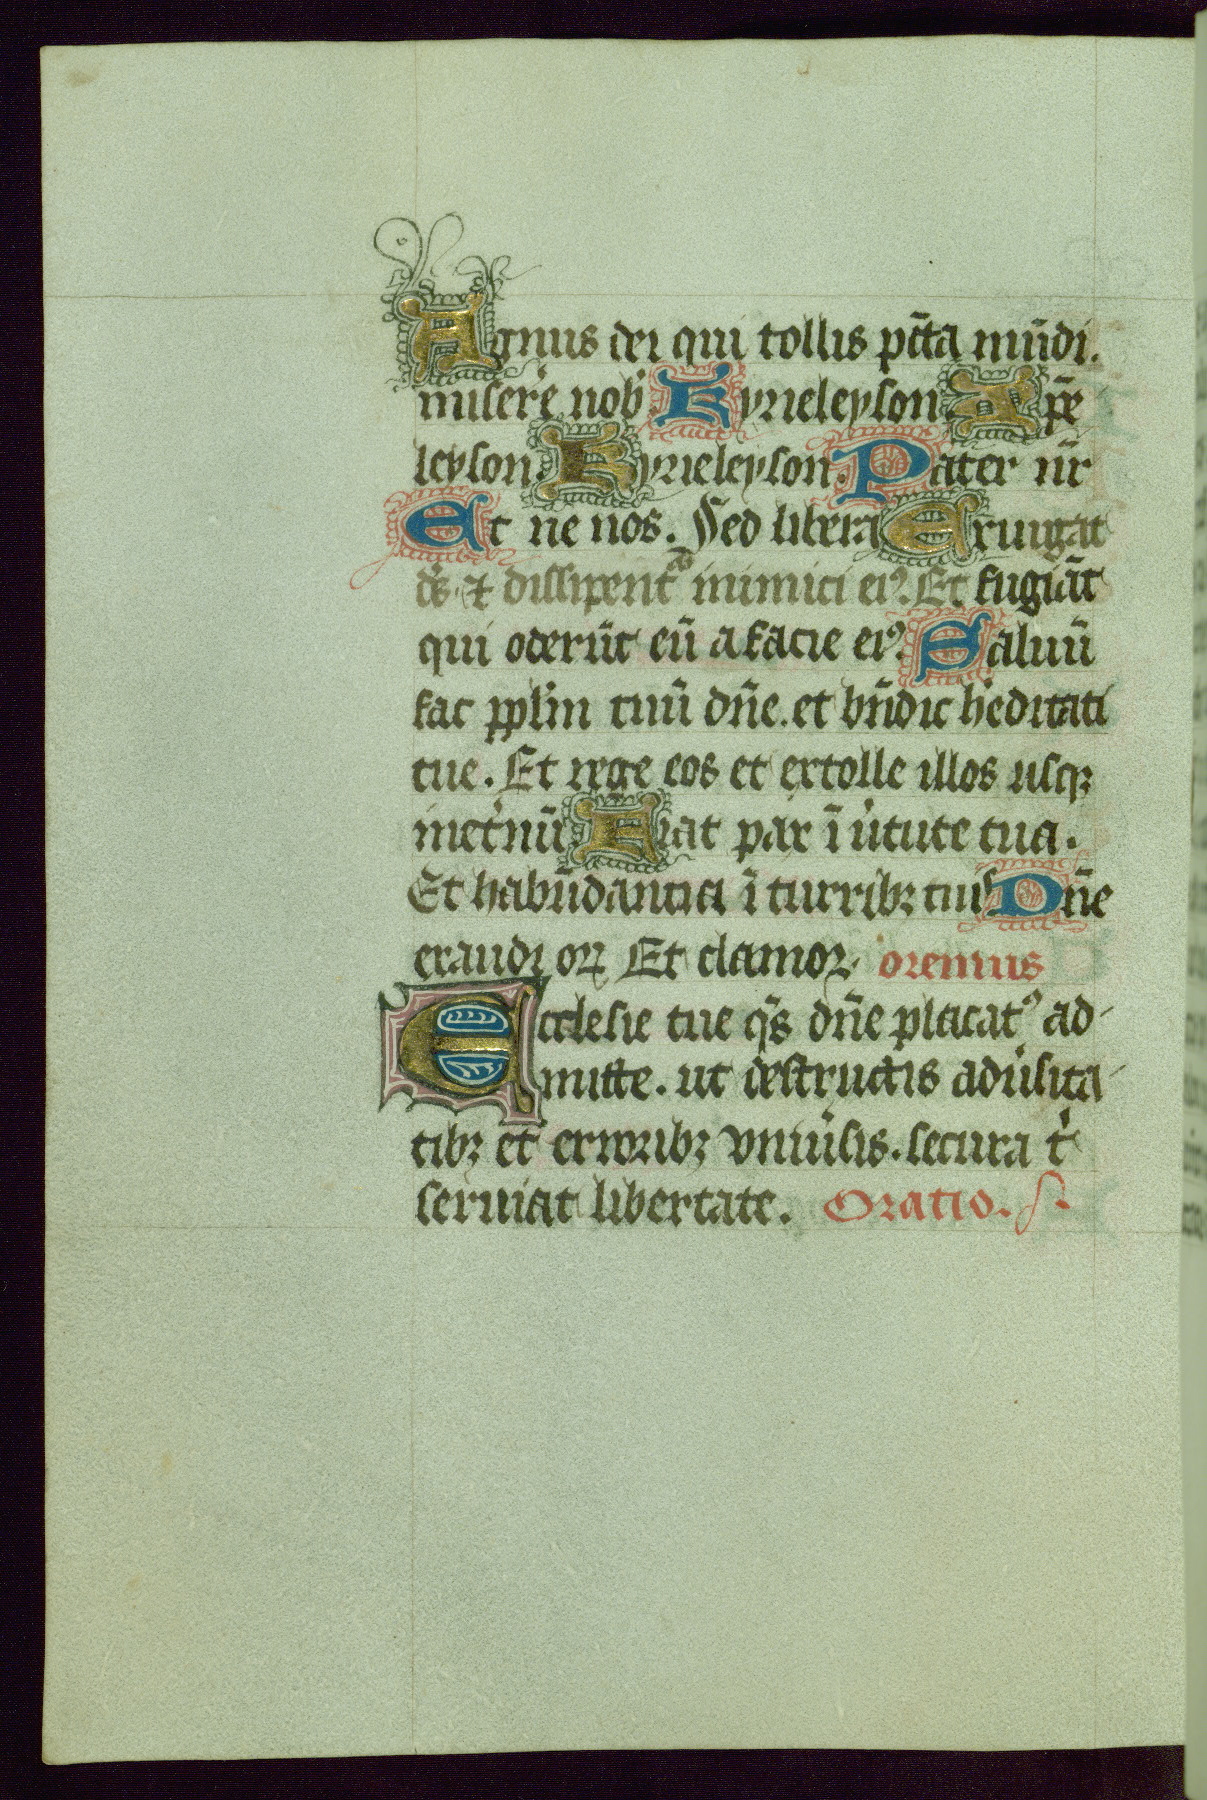 Agnus dei qui tollis pc̄ta mūdi.
miserē nob̄. Kyrieleyson. Xp̄e
leyson. Kyrieleyson. Pater nr̄
Et ne nos. Sed libera Exurgat
ds̄. ⁊ dissipent̄ inimici eiꝰ. Et fugiāt
qui oderūt eū a facie eiꝰ. Saluū
fac ppl̄m tuū dn̄e. et bn̄dic h̄editati
tue. Et rege eos et extolle illos usqꝫ
inet̄nū Fiat pax ī u̇tute tua.
Et habūdantia ī turribꝫ tuis Dn̄e
exaudi orꝫ Et clamor. oremus
Ecclesie tue q̄s dn̄e placatꝰ ad-
mitte. ut destructis adu̇sita-
tibꝫ et erroribꝫ vniu̇sis. secura t̄
seruiat libertate. Oratio. s.